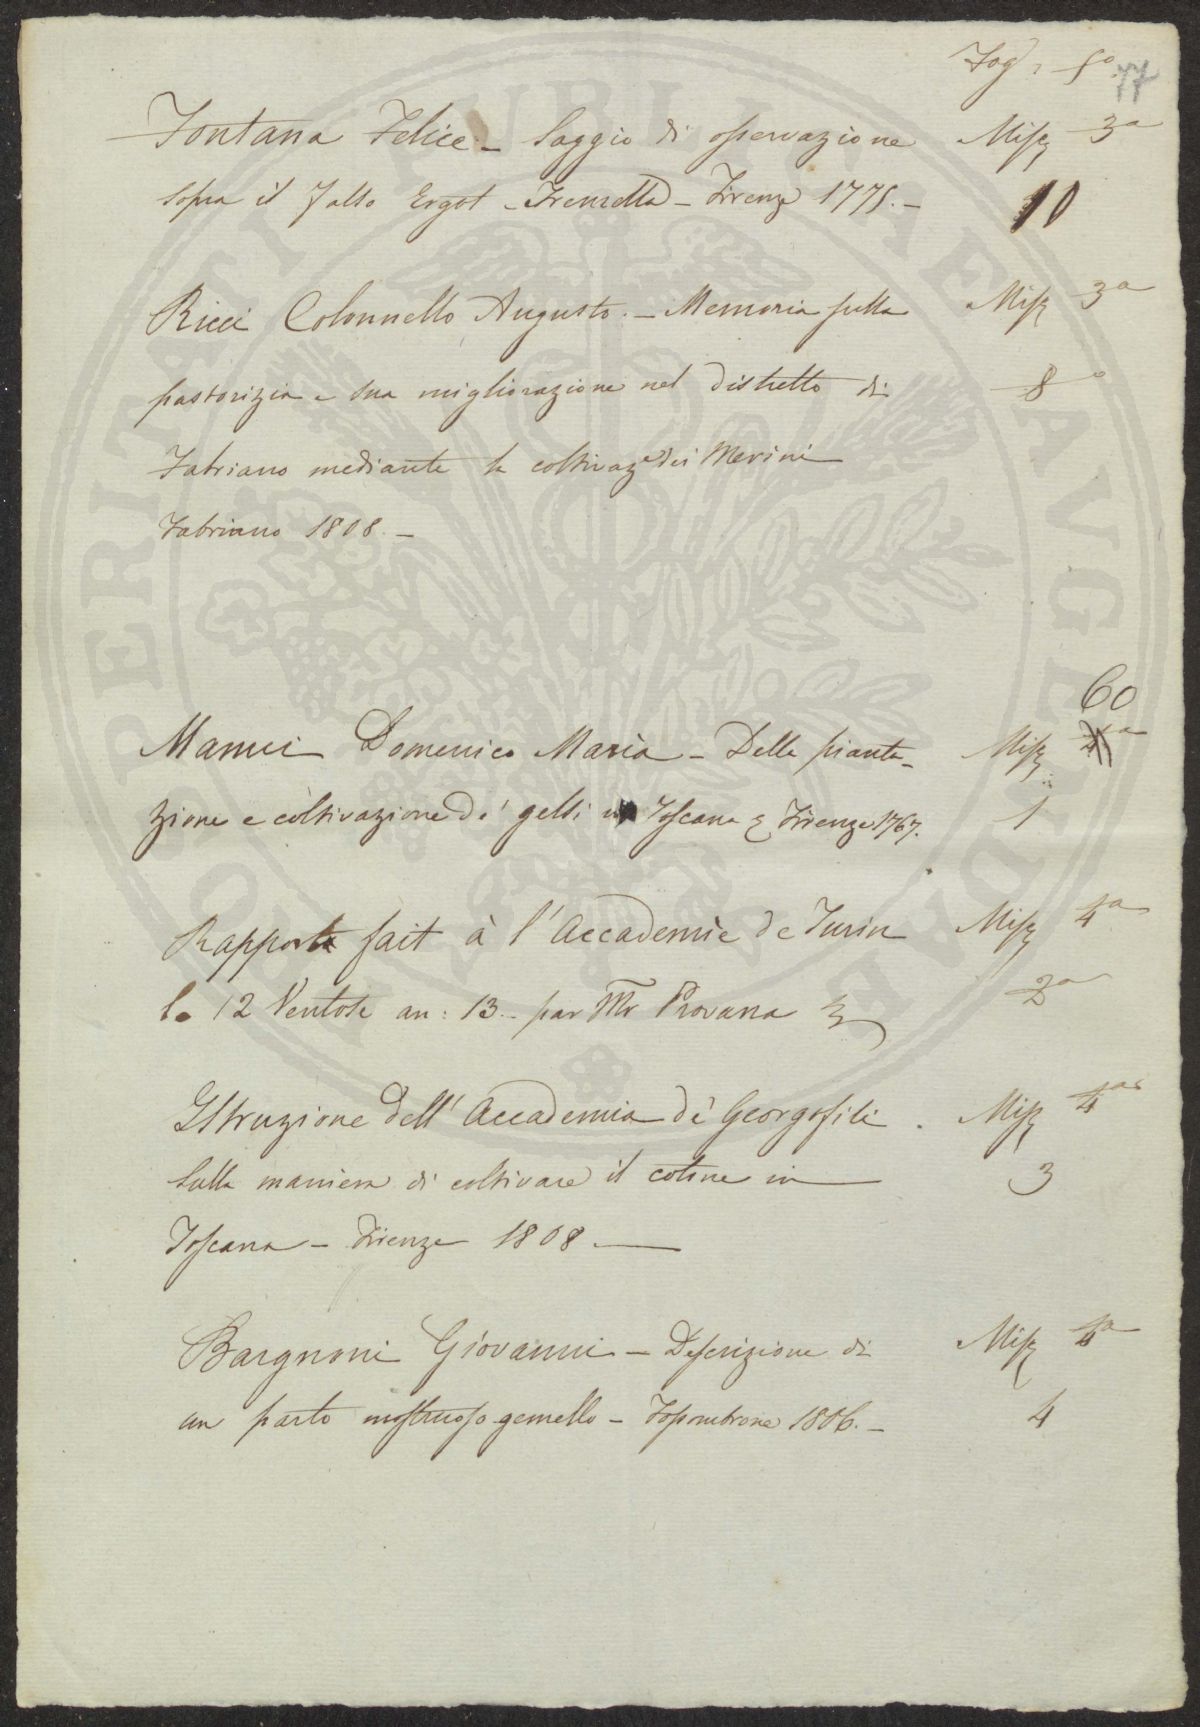 Fog: 5°
77
Fontana Felice – Saggio di osservazione Misc 3a
sopra il falso Ergot – Tremella – Firenze 1775. – 10
Ricci Colonnello Augusto. – Memoria sulla Misc 3a
pastorizia e sua migliorazione nel distretto di 8°
Fabriano mediante la coltivaze dei Merini
Fabriano 1808. –
60
Manni Domenico Maria – Della pianta- Misc
zione e coltivazione de' gelsi in Toscana & Firenze 1767. 1
Rapport fait à l'Accademie de Turin Misc 4a
le 12 Ventose an: 13. par Mr Provana & 2a
Istruzione dell'Accademia de' Georgofili. Misc 4a
sulla maniera di coltivare il cotone in 3
Toscana – Firenze 1808. –
Bargnoni Giovanni – Descrizione di Misc 4a
un parto mostruoso gemello – Fossombrone 1806. – 4
PROSPERITATI PUBLICAE AVGENDAE